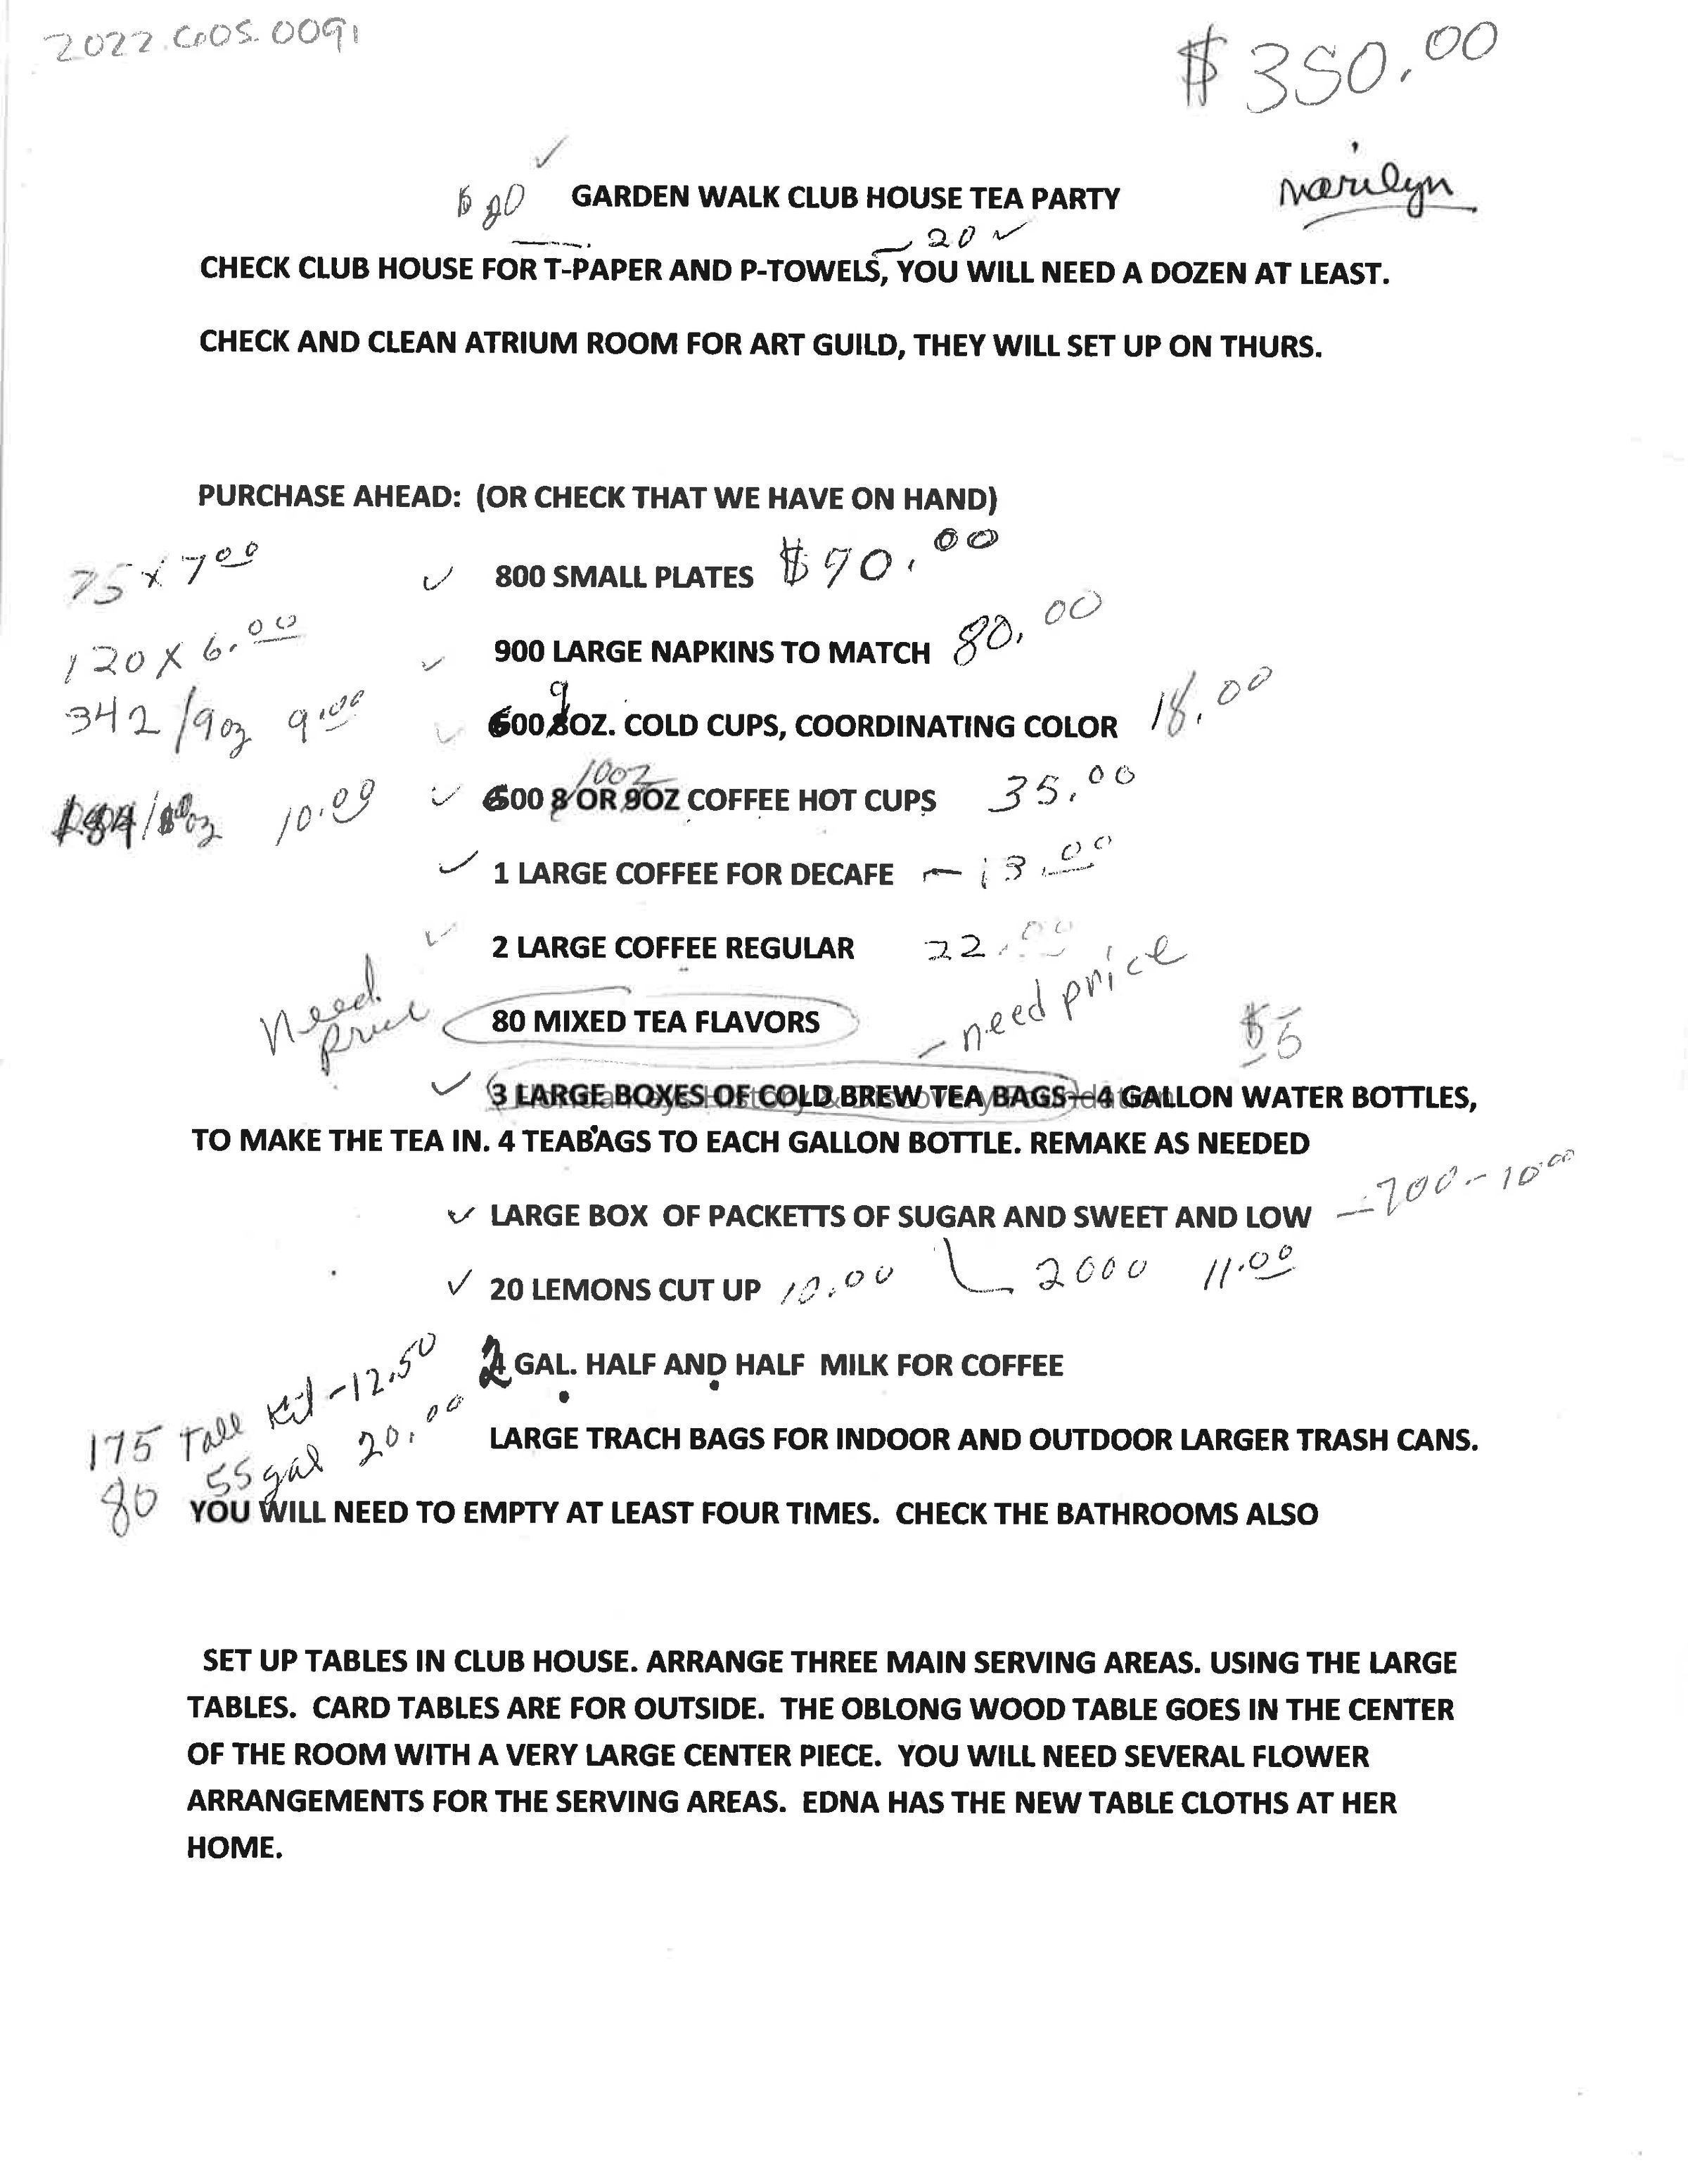 2022.GOS.0091
$350.00
Marilyn
$20 GARDEN WALK CLUB HOUSE TEA PARTY
20
CHECK CLUB HOUSE FOR T-PAPER AND P-TOWELS, YOU WILL NEED A DOZEN AT LEAST.
CHECK AND CLEAN ATRIUM ROOM FOR ART GUILD, THEY WILL SET UP ON THURS.
PURCHASE AHEAD: (OR CHECK THAT WE HAVE ON HAND)
75 x 7 00 ✓ 800 SMALL PLATES $90.00
120 X 6.00 ✓ 900 LARGE NAPKINS TO MATCH 80.00
342/9oz 9.00 ✓ 600 9OZ. COLD CUPS, COORDINATING COLOR 18.00
10.00 ✓ 600 10oz COFFEE HOT CUPS 35.00
✓ 1 LARGE COFFEE FOR DECAFE – 13.00
✓ 2 LARGE COFFEE REGULAR 22.00
Need price 80 MIXED TEA FLAVORS – need price $5
✓ 3 LARGE BOXES OF COLD BREW TEA BAGS—4 GALLON WATER BOTTLES,
Florida Keys History & Discovery Foundation
TO MAKE THE TEA IN. 4 TEABAGS TO EACH GALLON BOTTLE. REMAKE AS NEEDED
✓ LARGE BOX OF PACKETTS OF SUGAR AND SWEET AND LOW – 700 - 10.00
✓ 20 LEMONS CUT UP 10.00 2000 11.00
2 GAL. HALF AND HALF MILK FOR COFFEE
175 Tall Kit - 12.50
80 55 gal 20.00
LARGE TRACH BAGS FOR INDOOR AND OUTDOOR LARGER TRASH CANS.
YOU WILL NEED TO EMPTY AT LEAST FOUR TIMES. CHECK THE BATHROOMS ALSO
SET UP TABLES IN CLUB HOUSE. ARRANGE THREE MAIN SERVING AREAS. USING THE LARGE
TABLES. CARD TABLES ARE FOR OUTSIDE. THE OBLONG WOOD TABLE GOES IN THE CENTER
OF THE ROOM WITH A VERY LARGE CENTER PIECE. YOU WILL NEED SEVERAL FLOWER
ARRANGEMENTS FOR THE SERVING AREAS. EDNA HAS THE NEW TABLE CLOTHS AT HER
HOME.